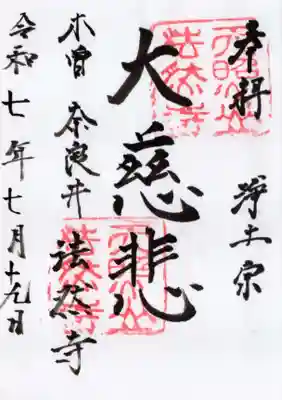 奉拝
浄土宗
大慈悲
木曽 奈良井 法然寺
令和七年七月十九日